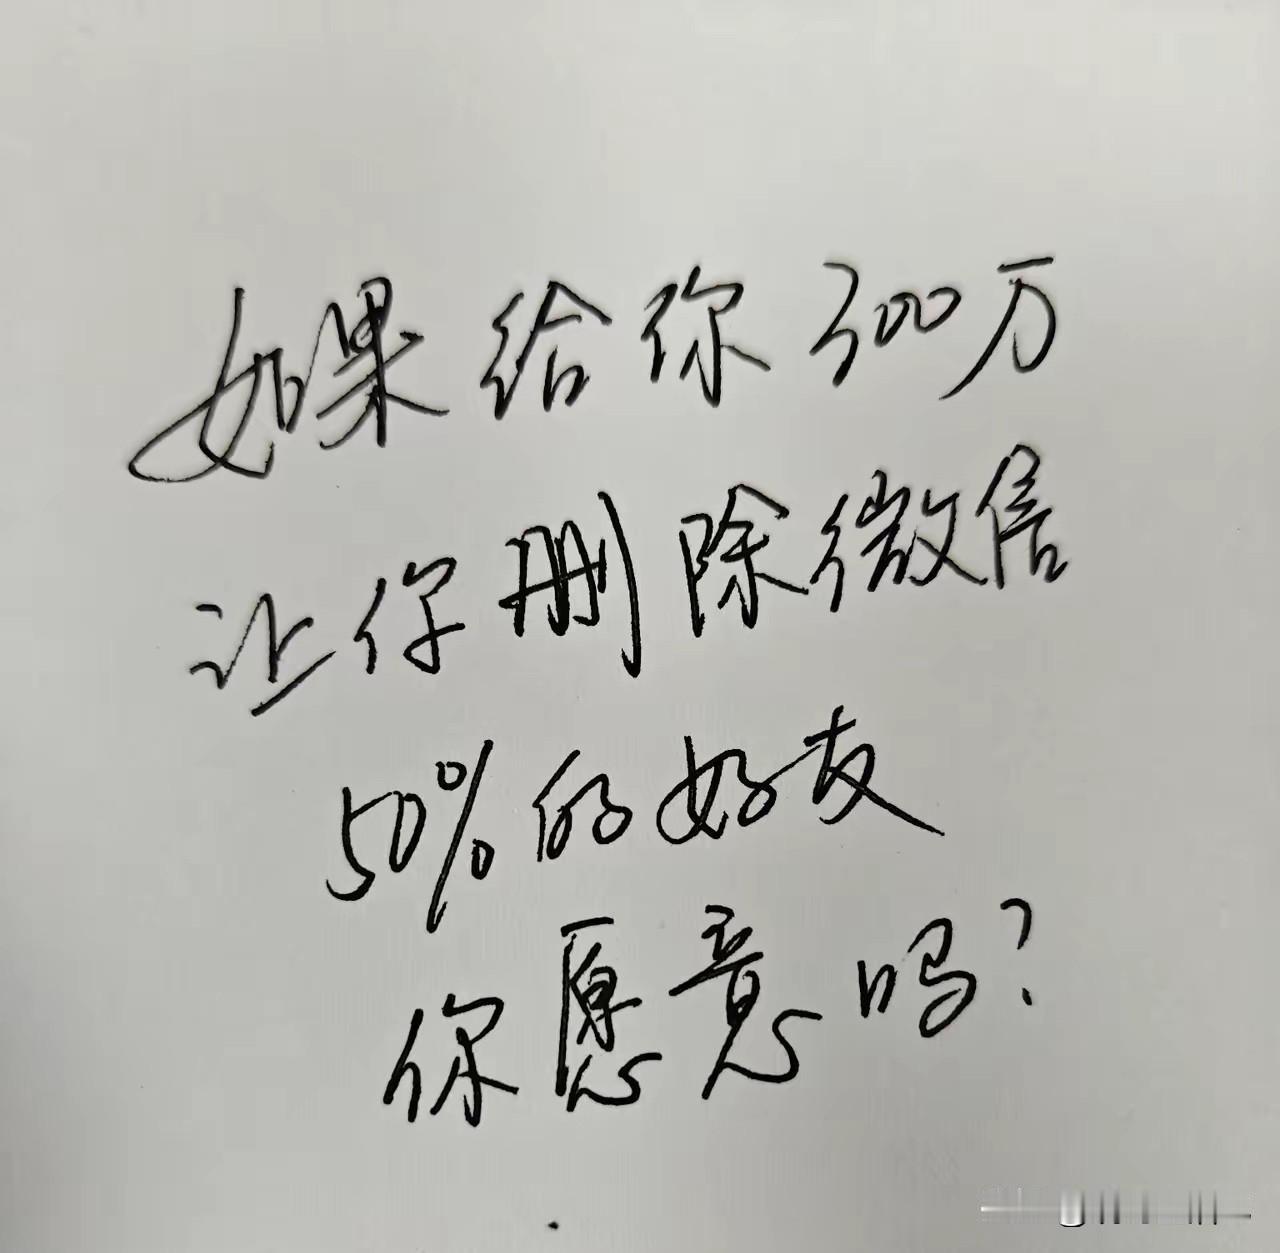 如果给你300万
让你删除微信
50%的好友
你愿意吗?